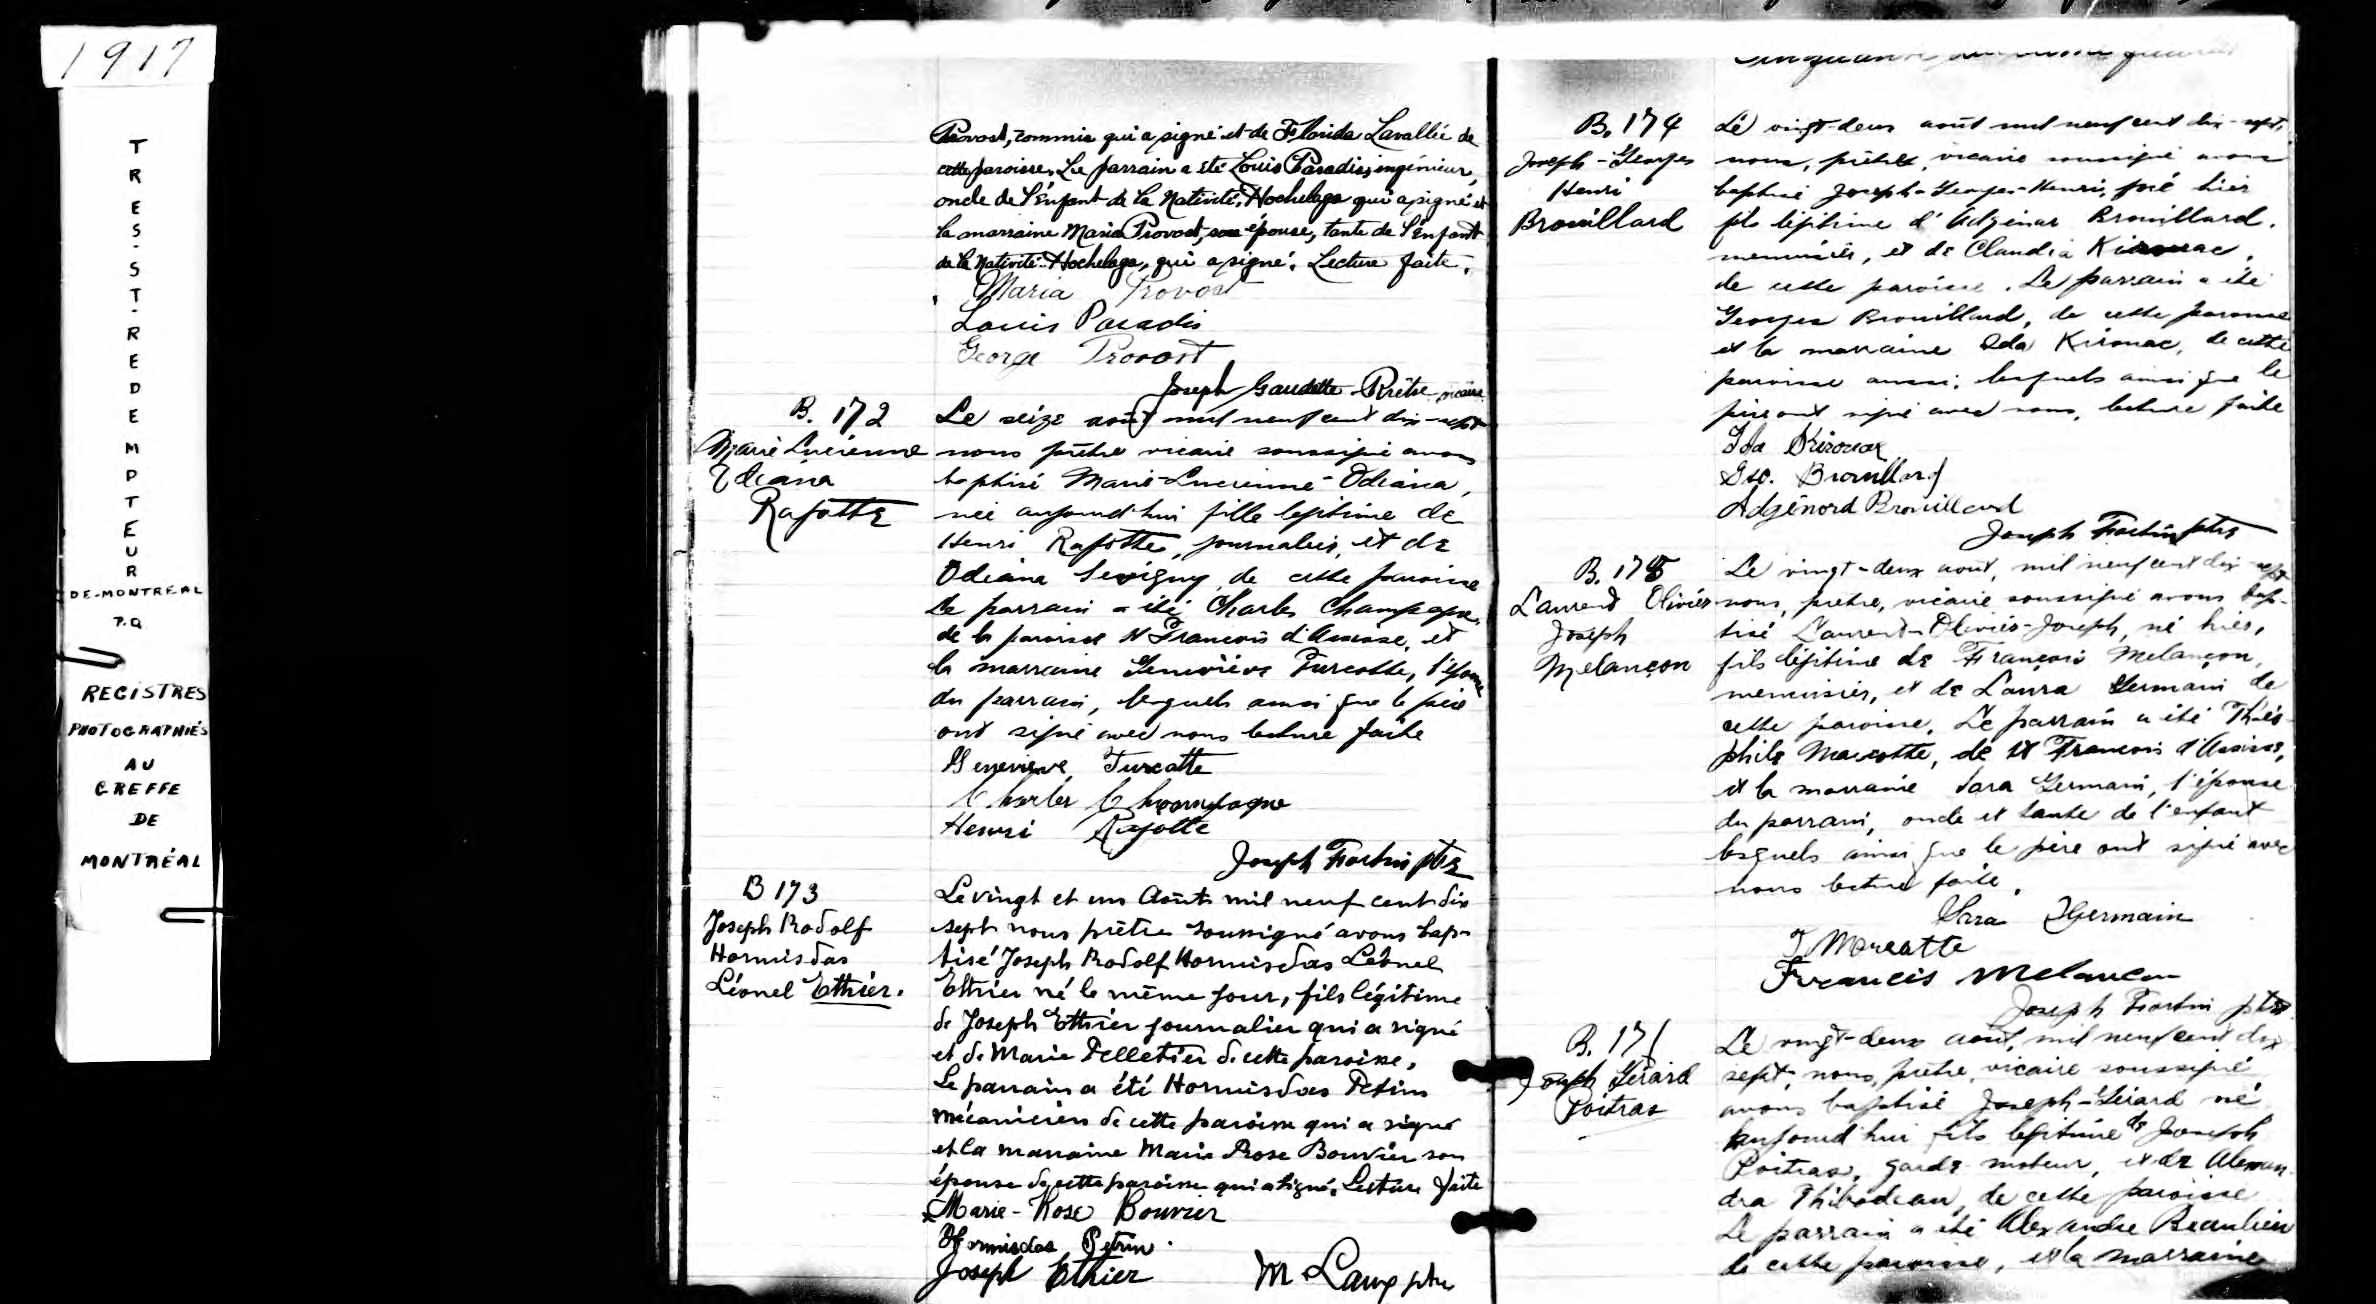 1917
TRES-ST-REDEMPTEUR
DE-MONTREAL
P.Q
REGISTRES
PHOTOGRAPHIÉS
AU
GREFFE
DE
MONTRÉAL
Provost, commis qui a signé et de Florida Lavallée de
cette paroisse. Le parrain a été Louis Paradis, ingénieur,
oncle de l'Enfant de la Nativité, Hochelaga qui a signé et
la marraine Maria Provost, son épouse, tante de l'Enfant
de la Nativité-Hochelaga, qui a signé. Lecture faite.
Maria Provost
Louis Paradis
George Provost
Joseph Gaudette Prêtre vicaire
B. 172
Marie Lucienne
Odeána
Rajotte
Le seize août mil neuf cent dix-sept
nous prêtre vicaire soussigné avons
baptisé Marie-Lucienne-Odeána,
née aujourd'hui fille légitime de
Henri Rajotte, journalier, et de
Odeána Sevigny de cette paroisse
Le parrain a été Charles Champagne,
de la paroisse St François d'Assise, et
la marraine Geneviève Turcotte, l'épouse
du parrain, lesquels ainsi que le père
ont signé avec nous lecture faite
Genevieve Turcotte
Charles Champagne
Henri Rajotte
Joseph Fortin ptre
B 173
Joseph Rodolf
Hormisdas
Léonel Ethier.
Le vingt et un Août mil neuf cent dix
sept nous prêtre soussigné avons bap-
tisé Joseph Rodolf Hormisdas Léonel
Ethier né le même jour, fils légitime
de Joseph Ethier journalier qui a signé
et de Marie Pelletier de cette paroisse.
Le parrain a été Hormisdas Petrin
mécanicien de cette paroisse qui a signé
et la marraine Marie Rose Bouvier son
épouse de cette paroisse qui a signé. Lecture faite
Marie-Rose Bouvier
Hormisdas Petrin.
Joseph Ethier
M. Laux ptre
B. 174
Joseph-Georges
Henri
Brouillard
Le vingt-deux août mil neuf cent dix-sept,
nous, prêtre, vicaire soussigné avons
baptisé Joseph-Georges-Henri, né hier
fils légitime d'Adgénar Brouillard.
menuisier, et de Claudia Kirouac,
de cette paroisse. Le parrain a été
Georges Brouillard, de cette paroisse
et la marraine Ida Kirouac, de cette
paroisse aussi, lesquels ainsi que le
père ont signé avec nous, lecture faite
Ida Kirouac
Geo. Brouillard
Adgénord Brouillard
Joseph Fortin ptre
B. 175
Laurent Olivier
Joseph
Melançon
Le vingt-deux aout, mil neuf cent dix-sept
nous, prêtre, vicaire soussigné avons bap-
tisé Laurent-Olivier-Joseph, né hier,
fils légitime de François Melançon,
menuisier, et de Laura Germain de
cette paroisse. Le parrain a été Théo-
phile Marcotte, de St François d'Assise,
et la marraine Sara Germain, l'épouse
du parrain, oncle et tante de l'enfant
lesquels ainsi que le père ont signé avec
nous lecture faite.
Sara Germain
T Marcotte
Francis Melancon
Joseph Fortin ptre
B. 17
Joseph Gérard
Poitras
Le vingt-deux août, mil neuf cent dix
sept, nous, prêtre, vicaire soussigné
avons baptisé Joseph-Gérard né
aujourd'hui fils légitime de Joseph
Poitras, garde-moteur, et de Alexan-
dra Thibodeau, de cette paroisse
Le parrain a été Alexandre Beaulieu
de cette paroisse, et la marraine